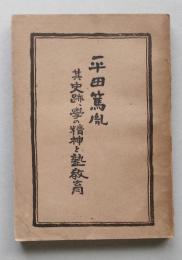 平田篤胤
其史跡、學の精神と塾教育